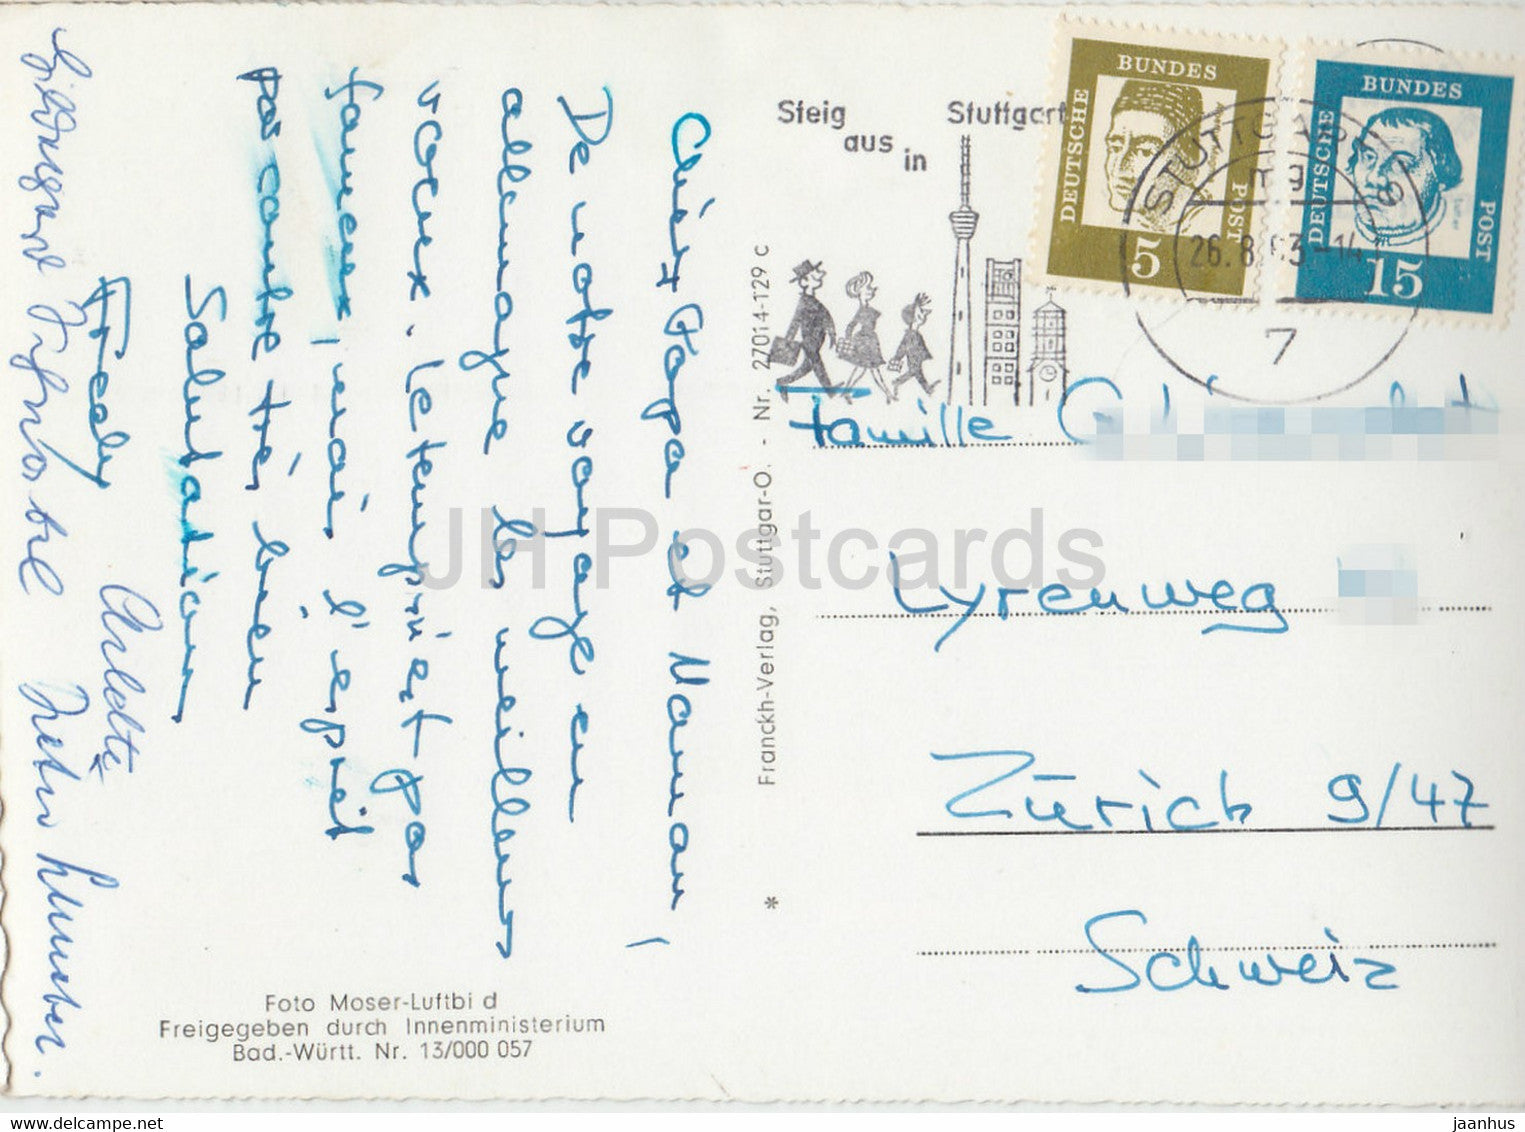 Chers Papa et Maman!
De notre voyage en
allemagne les meilleurs
voeux. Le temps n'est pas
fameux, mais l'esprit
par contre très bien
Salutations
Fredy
Arlette
Steig aus in Stuttgart
DEUTSCHE BUNDES POST 5
DEUTSCHE BUNDES POST 15
STUTTGART
26.8.63-14
7
Famille
Lyrenweg
Zürich 9/47
Schweiz
Franckh-Verlag, Stuttgar-O. - Nr. 27014-129 c
*
Foto Moser-Luftbi d
Freigegeben durch Innenministerium
Bad.-Württ. Nr. 13/000 057
JH Postcards
www.delcampe.net
jaanhus